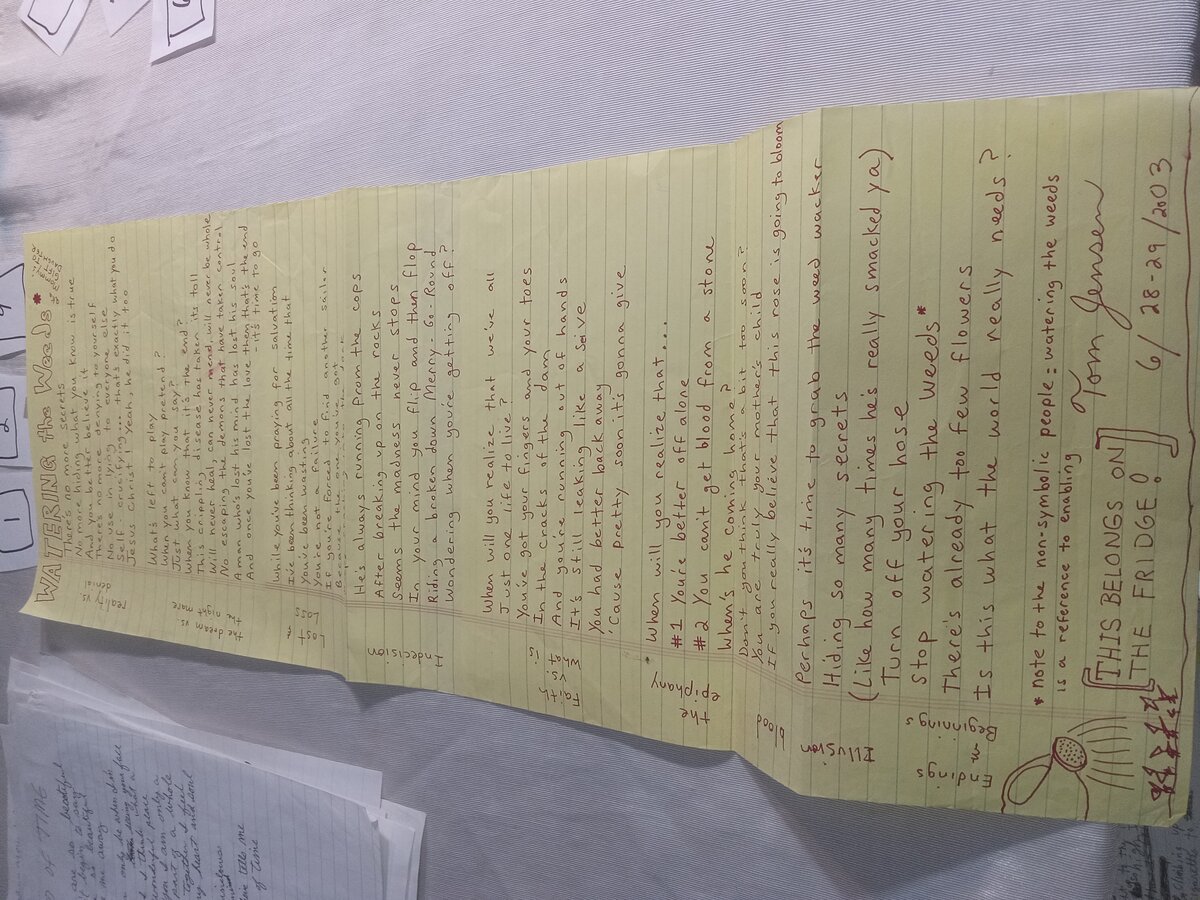 WATERING the Weeds *
There's no more secrets
No more hiding what you know is true
And you better believe it
There's no more denying to yourself
No use in lying to everyone else
Self crucifying... that's exactly what you do
Jesus Christ! Yeah, he did it too
reality vs denial
What's left to play
When you can't play pretend?
Just what can you say?
When you know that it's the end?
This crippling disease has taken its toll
Will never heal, can never mend, will never be whole
No escaping the demons that have taken control
A man who's lost his mind has lost his soul
And once you've lost the love then that's the end
- it's time to go
the dream vs the nightmare
While you've been praying for salvation
I've been thinking about all the time that
You've been wasting
You're not a failure
If you're forced to find another sailor
Lost & Loss
He's always running from the cops
After breaking up on the rocks
Seems the madness never stops
In your mind you flip and then flop
Riding a broken down Merry-Go-Round
Wondering when you're getting off?
Indecision
When will you realize that we've all
Just one life to live?
You've got your fingers and your toes
In the cracks of the dam
And you're running out of hands
It's still leaking like a seive
You had better back away
'Cause pretty soon it's gonna give
Faith vs. what is
When will you realize that....
#1 You're better off alone
#2 You can't get blood from a stone
the epiphany
When's he coming home?
Don't you think that's a bit too soon?
You are truly your mother's child
If you really believe that this rose is going to bloom
blood
Perhaps it's time to grab the weed wacker
Hiding so many secrets
(Like how many times he's really smacked ya)
Illusion
Turn off your hose
Stop watering the weeds *
There's already too few flowers
Is this what the world really needs?
Endings n Beginnings
* note to the non-symbolic people = watering the weeds
is a reference to enabling
[THIS BELONGS ON
THE FRIDGE!]
Tom Jensen
6/28-29/2003
1
2
OF TIME
are so beautiful
begin to say
beautiful
me away
only be when I'm
seeing your face
I think that a
wonderful place
I am only a
part of a whole
together I feel
my heart and soul
tells me
of time